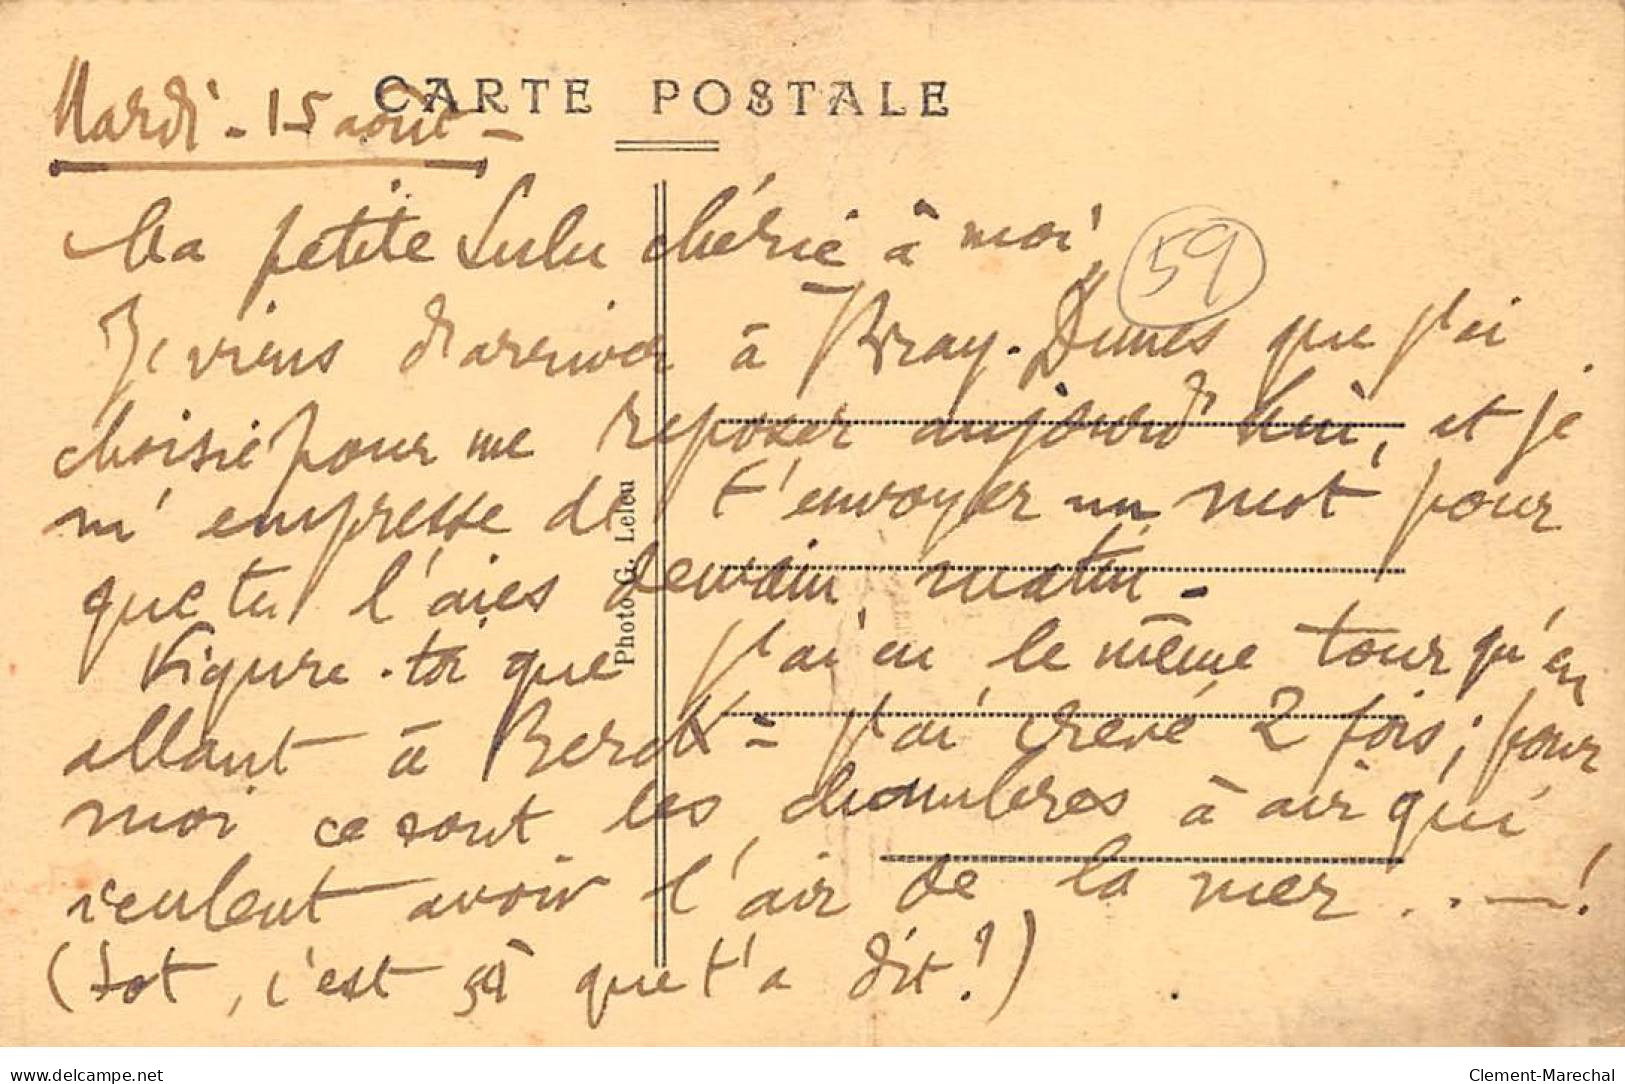 CARTE POSTALE
Mardi - 15 août -
Ma petite Lulu chérie à moi,
59
Je viens d'arriver à Bray-Dunes que j'ai
choisie pour me reposer aujourd'hui, et je
m'empresse de t'envoyer un mot pour
que tu l'aies demain matin -
Figure-toi que j'ai eu le même tour qu'en
allant à Berck = j'ai crevé 2 fois; pour
moi ce sont les chambres à air qui
veulent avoir l'air de la mer ..—!
(Sot, c'est ça que t'a dit!)
Photo G. Lelou
delcampe.net
Clement-Marechal